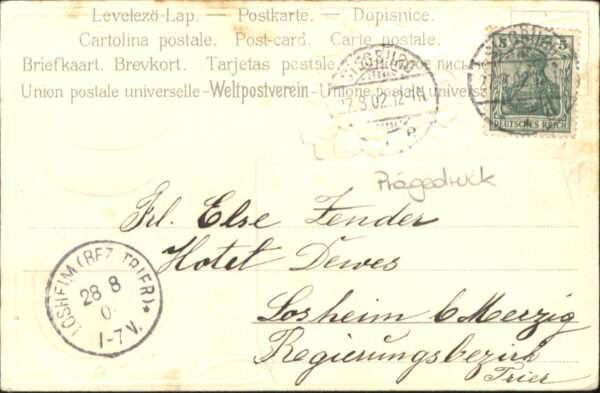 Levelezö-Lap. — Postkarte. — Dopisnice.
Cartolina postale. Post-card. Carte postale.
Briefkaart. Brevkort. Tarjetas postale
Union postale universelle - Weltpostverein - Unione postale univers
5 5
DEUTSCHES REICH
27.8.02.12-1N
Prägedruck
Frl. Else Zender
Hotel Dewes
Losheim b Merzig
Regierungsbezirk
Trier
LOSHEIM (BEZ. TRIER) *
28 8
1-7 V.